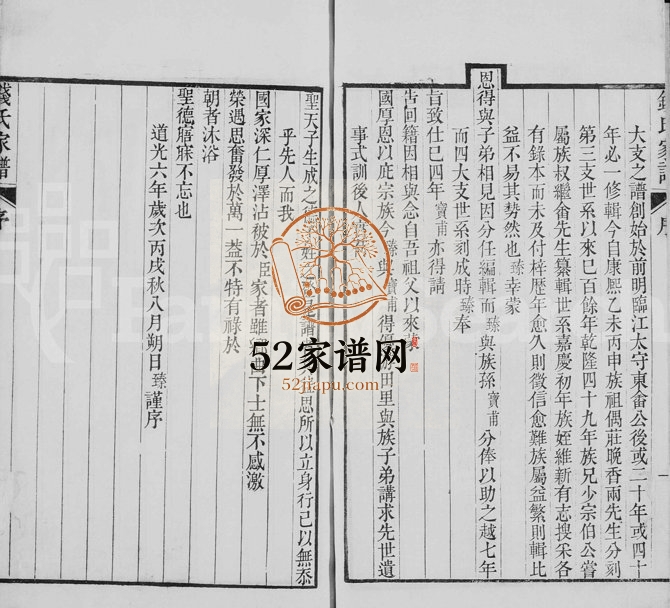 大支之譜創始於前明臨江太守東畬公後或二十年或四十
年必一修輯今自康熙乙未丙申族祖偶莊晩香兩先生分刻
第三支世系以來巳百餘年乾隆四十九年族兄少宗伯公嘗
屬族叔繼畬先生纂輯世系嘉慶初年族姪維新有志搜采各
有錄本而未及付梓歷年愈久則徵信愈難族屬益繁則輯比
益不易其勢然也臻幸蒙
恩得與子弟相見因分任編輯而臻與族孫寶甫分俸以助之越七年
而四大支世系刻成時臻奉
旨致仕巳四年寶甫亦得請
告回籍因相與念自吾祖父以來
國厚恩以庇宗族今臻與寶甫得
田里與族子弟講求先世遺
事式訓後人
聖天子生成之
思所以立身行己以無忝
乎先人而我
國家深仁厚澤沾被於臣家者雖
下士無不感激
榮遇思奮發於萬一葢不特有祿於
朝者沐浴
聖德寤寐不忘也
道光六年歲次丙戌秋八月朔日臻謹序
錢氏家譜
序
52家谱网
52jiapu.com